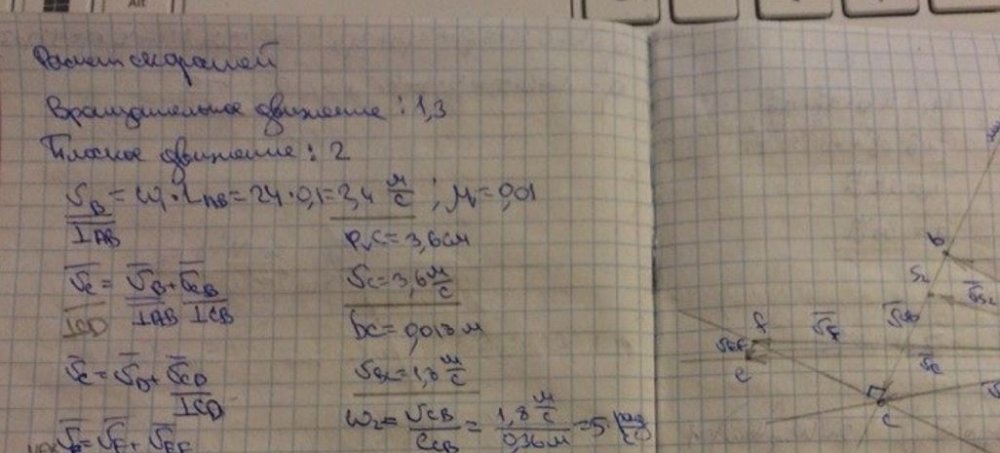 Alt
Расчет скоростей
Вращательное движение: 1,3
Плоское движение: 2
V_B = ω₁·L_AB = 24·0,1 = 3,4 м/с ; μ = 0,01
⊥AB
P_vC = 3,6см
V̅_C = V̅_B + V̅_CB
⊥CD ⊥AB ⊥CB
V_C = 3,6 м/с
bc = 0,018 м
V̅_C = V̅_D + V̅_CD
⊥CD
V_BC = 1,8 м/с
ω₂ = V_CB / ℓ_CB = 1,8 м/с / 0,36м = 5 рад/с
b
S₂
V̅_CB
f
V̅_F
e
V̅_C
c